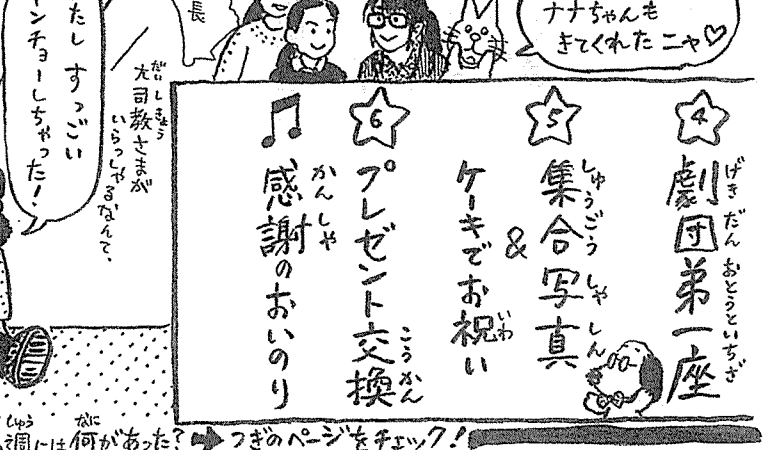 ナナちゃんも
きてくれたニャ♡
④
劇団弟一座
げきだんおとうといちざ
⑤
集合写真
しゅうごうしゃしん
&
ケーキでお祝い
いわ
⑥
プレゼント交換
こうかん
♫
感謝のおいのり
かんしゃ
長
大司教さまが
だいしきょう
いらっしゃるなんて、
たし すっごい
ンチョーしちゃった!
週には何があった?➡つぎのページをチェック!
しゅう
なに